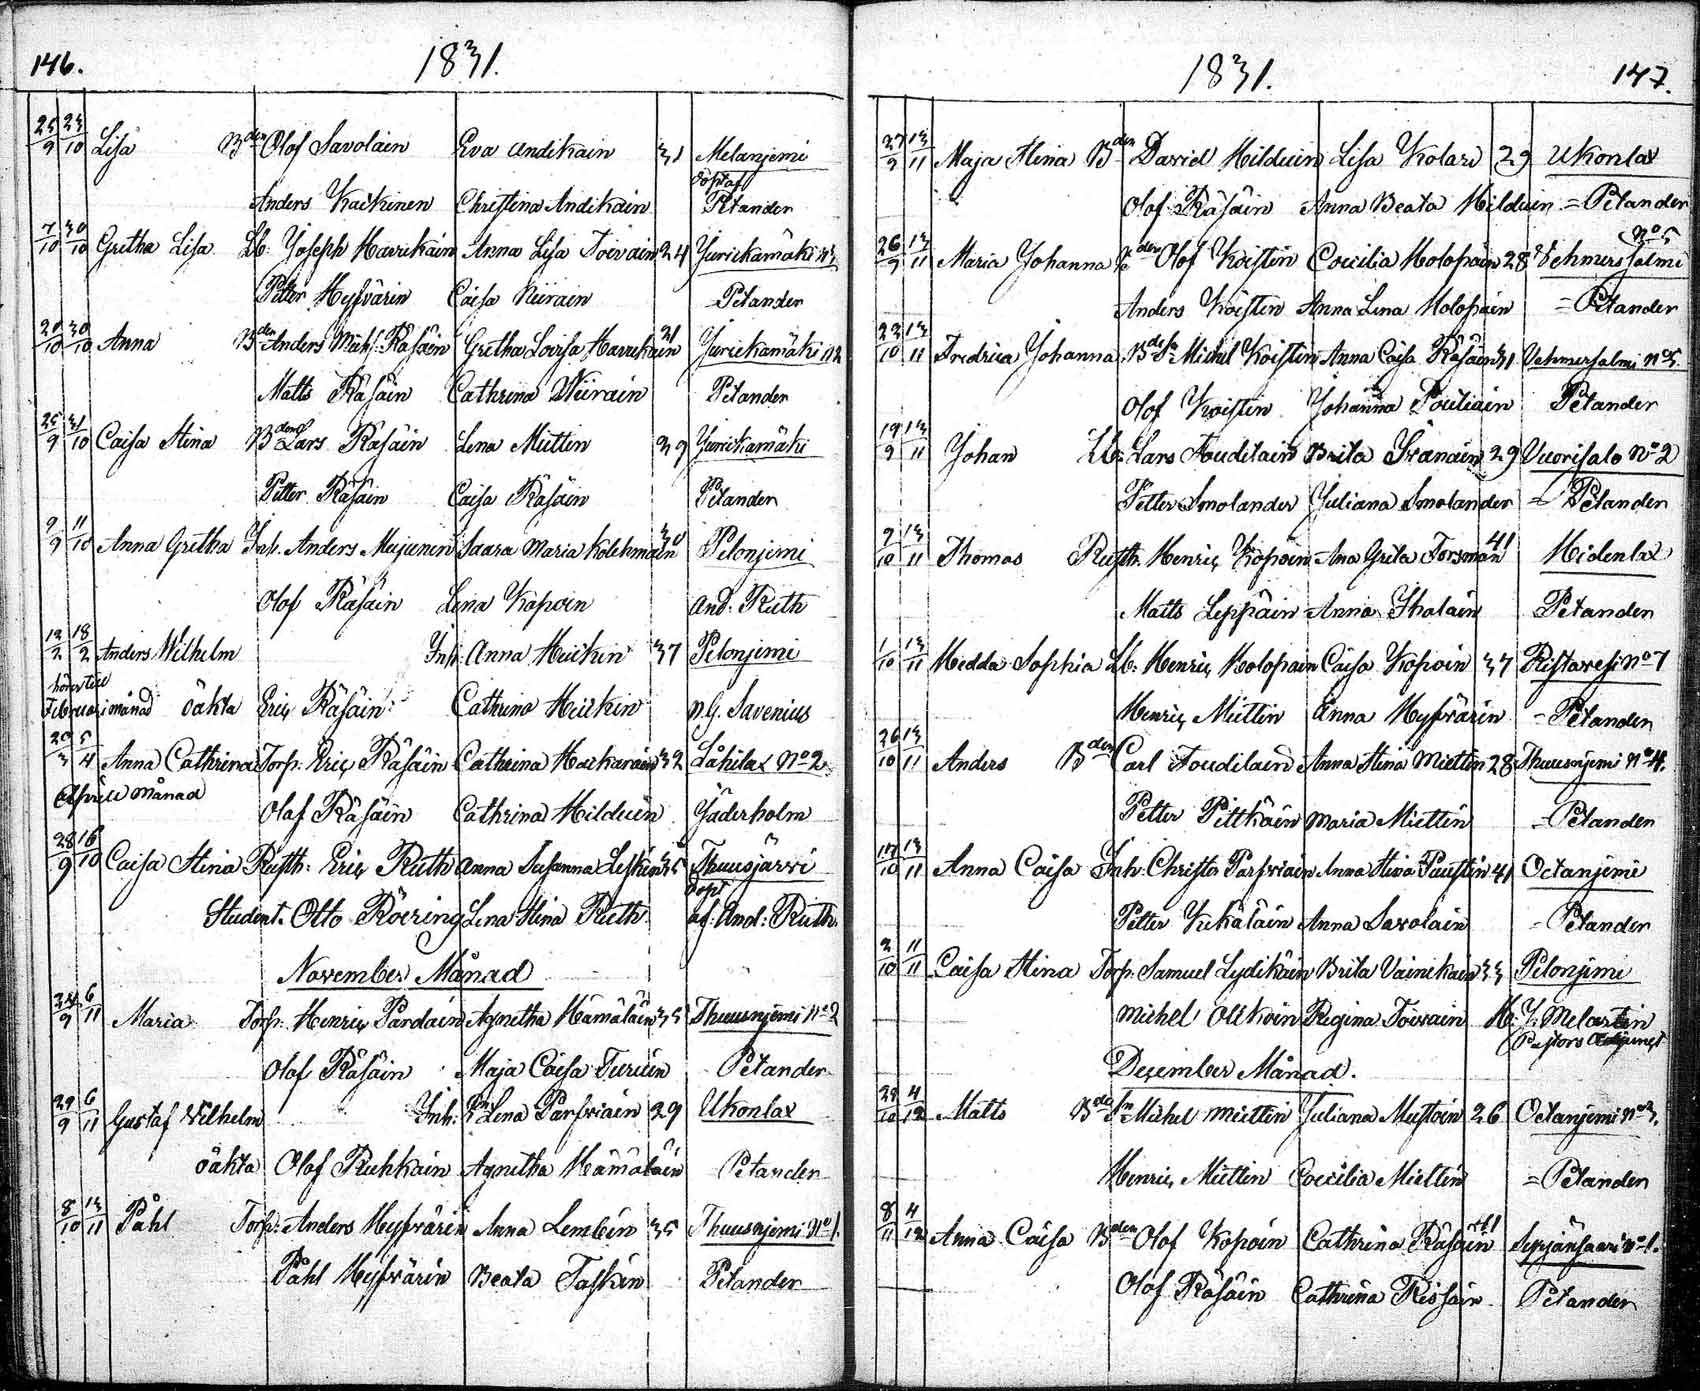 146.
1831.
25/9 23/10 Lisa Bden Olof Savolain Eva Andikain 31 Melanjemi
döpt af
Anders Kaikinen Christina Andikain Petander
7/10 30/10 Gretha Lisa Lb: Joseph Havukain Anna Lisa Toivain 24 Jurickamäki
Petter Hyfvärin Caisa Niirain Petander
20/10 30/10 Anna Bden Anders Mich: Räsäin Gretha Lovisa Havukain 21 Jurickamäki N 2
Matts Räsäin Cathrina Niirain Petander
25/9 31/10 Caisa Stina Lars Räsäin Lena Miettin 39 Jurickamäki
Petter Räsäin Caisa Räsäin Petander
9/9 11/10 Anna Gretha Inh. Anders Mujunen Saara Maria Kolehmain 30 Pelonjemi
Olof Räsäin Lena Kopoin And: Ruth
12/2 18/2 Anders Wilhelm Inh: Anna Heickin 37 Pelonjemi
hörer till
Februari månad oäkta Eric Räsäin Cathrina Heickin N. G. Savenius
20/3 5/4 Anna Cathrina Torp: Eric Räsäin Cathrina Hackarain 32 Låkilax No 2
Aprill månad
Olof Räsäin Cathrina Hilduin Jäderholm
28/9 16/10 Caisa Stina Rusth: Eric Ruth Anna Susanna Leskin 35 Thuusjärvi
döpt
Student. Otto Roering Lena Stina Ruth af: And: Ruth
November Månad
24/9 6/11 Maria Torp: Henric Pardain Agnetha Hämäläin 35 Thuusnjemi No 2
Olof Räsäin Maja Caisa Turuin Petander
29/9 6/11 Gustaf Wilhelm Inh: Lena Parfviain 29 Ukonlax
oäkta Olof Ruhkain Agnetha Hämäläin Petander
8/10 13/11 Påhl Torp: Anders Hyfvärin Anna Lembin 35 Thuusnjemi No 1.
Påhl Hyfvärin Beata Taskin Petander
1831.
147.
27/9 13/11 Maja Stina Bden David Hilduin Lisa Kolari 29 Ukonlax
Olof Räsäin Anna Beata Hilduin = Petander
No 5
26/9 13/11 Maria Johanna Olof Koistin Coecilia Holopain 28 Vehmersalmi
Anders Koistin Anna Lina Holopain = Petander
22/10 13/11 Fredrica Johanna Michel Koistin Anna Caisa Räsäin 31 Vehmersalmi No 5.
Olof Koistin Johanna Poutiain Petander
19/9 13/11 Johan Lb: Lars Toudilain Brita Iivanain 29 Vuorisalo No 2
Petter Smolander Juliana Smolander = Petander
9/10 13/11 Thomas Rusth. Henric Kopoin Ana Greta Forsman 41 Hidenlax
Matts Leppäin Anna Ihalain Petander
1/10 13/11 Hedda Sophia Lb. Henric Holopain Caisa Kopoin 37 Ristavesi No 7
Henric Miettin Anna Hyfvärin - Petander
26/10 13/11 Anders Bden Carl Toudilain Anna Stina Miettin 28 Thuusnjemi No 4.
Petter Pittkäin Maria Miettin - Petander
17/10 13/11 Anna Caisa Inh: Christer Parfviain Anna Stina Puustin 41 Octanjemi
Petter Kukäläin Anna Savolain - Petander
2/10 11/11 Caisa Stina Torp: Samuel Lydikäin Brita Vainikain 33 Pelonjemi
Michel Olikoin Regina Toivain H: J: Melartin
Pastors Adjunct
December Månad.
29/10 4/12 Matts Michel Miettin Juliana Mustoin 26 Octanjemi No 3.
Henric Miettin Coecilia Miettin = Petander
8/11 4/12 Anna Caisa Bden Olof Kopoin Cathrina Räsäin 41 Syvjänsaari No 1.
Olof Räsäin Cathrina Rissain Petander